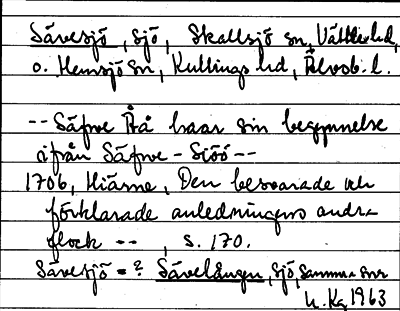 Sävesjö, sjö, Skallsjö sn, Vättle hd,
o. Hemsjö sn, Kullings hd, Älvsb. l.
-- Säfwe Åå haar sin begynnelse
ifrån Säfwe-Siöö--
1706, Hiärne, Den beswarade och
förklarade anledningens andra
flock --, s. 170.
Sävesjö = ? Sävelången, sjö, samma snr